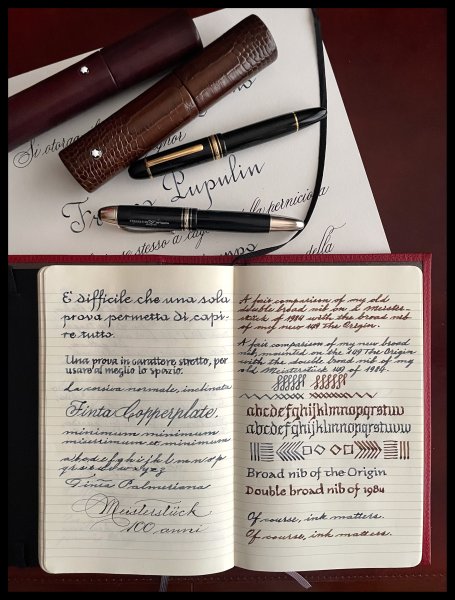 Si otorga
gnor
Fr
Pupulin
stesso a cag
la perniciosa
della
È difficile che una sola
prova permetta di capi-
re tutto.
Una prova in carattere stretto, per
usare al meglio lo spazio.
La corsiva normale, inclinata
Finta Copperplate,
minimum minimum
minimum et minimum
a b c d e f g h i j k l m n o p
Finta Palmeriana
Meisterstück
100 anni
A fair comparison of my old
double broad nib on a Meister-
stück of 1984 with the broad nib
of my new 149 The Origin.
A fair comparison of my new broad
nib, mounted on the 149 The Origin
with the double broad nib of my
old Meisterstück 149 of 1984.
abcdefghijklmnopqrstuw
abcdefghijklmnopqrstuvw
Broad nib of the Origin
Double broad nib of 1984
Of course, ink matters.
Of course, ink matters.